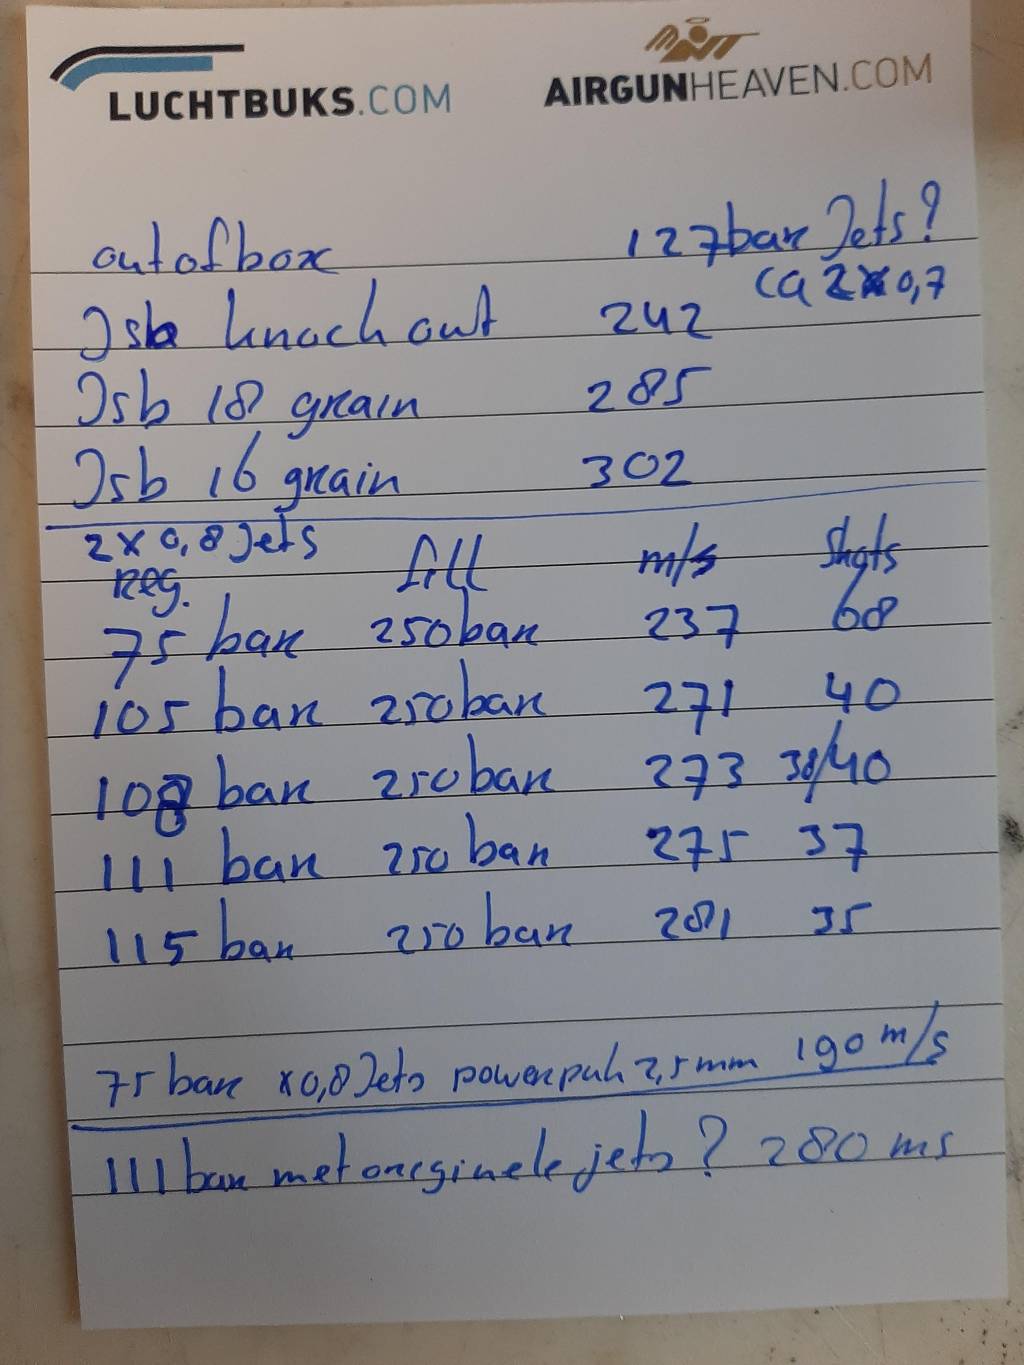 LUCHTBUKS.COM AIRGUNHEAVEN.COM
out of box 127bar Jets?
ca 2x0,7
Jsb knock out 242
Jsb 18 grain 285
Jsb 16 grain 302
2x0,8 Jets
Reg. fill m/s Shots
75 bar 250bar 237 68
105 bar 250bar 271 40
108 bar 250bar 273 38/40
111 bar 250 bar 275 37
115 bar 250 bar 281 35
75 bar x0,8 Jets 2,5mm 190 m/s
111 bar met orreginele jets? 280 ms